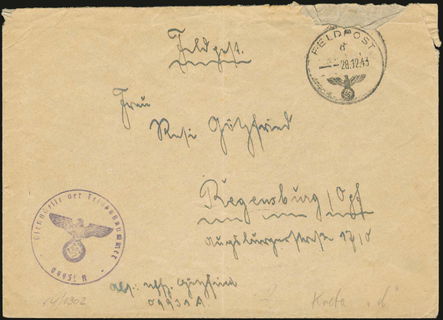 Feldpost.
FELDPOST
d
28.12.43
Frau
Rosi Götzfried
Regensburg / Opf
Augsburgerstraße
Dienststelle der Feldpostnummer
09931 A
Abs.: Uffz. Götzfried
09931 A
Kreta "d"